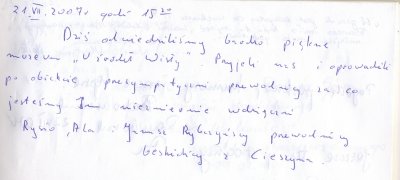 21.VII.2007r godz 15 20
Dziś odwiedziliśmy bardzo piękne
muzeum "U źródeł Wisły". Przyjęli nas i oprowadzili
po obiekcie przesympatyczni przewodnicy za co
jesteśmy Im niezmiernie wdzięczni
Ala i Janusz przewodnicy
beskidzcy z Cieszyna.